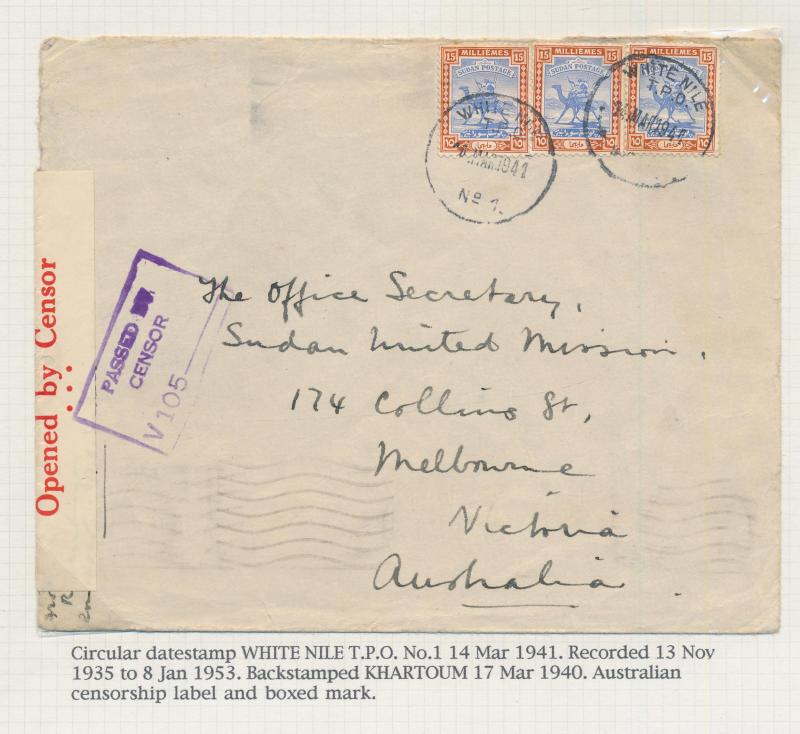 15 MILLIÈMES 15
SUDAN POSTAGE
15 MILLIÈMES 15
SUDAN POSTAGE
15 MILLIÈMES 15
WHITE NILE
T.P.O.
MAR 1941
No 1.
WHITE NILE
T.P.O.
14 MAR 1941
Opened by Censor
PASSED BY
CENSOR
V105
The Office Secretary,
Sudan United Mission,
174 Collins St,
Melbourne
Victoria
Australia.
Circular datestamp WHITE NILE T.P.O. No.1 14 Mar 1941. Recorded 13 Nov
1935 to 8 Jan 1953. Backstamped KHARTOUM 17 Mar 1940. Australian
censorship label and boxed mark.